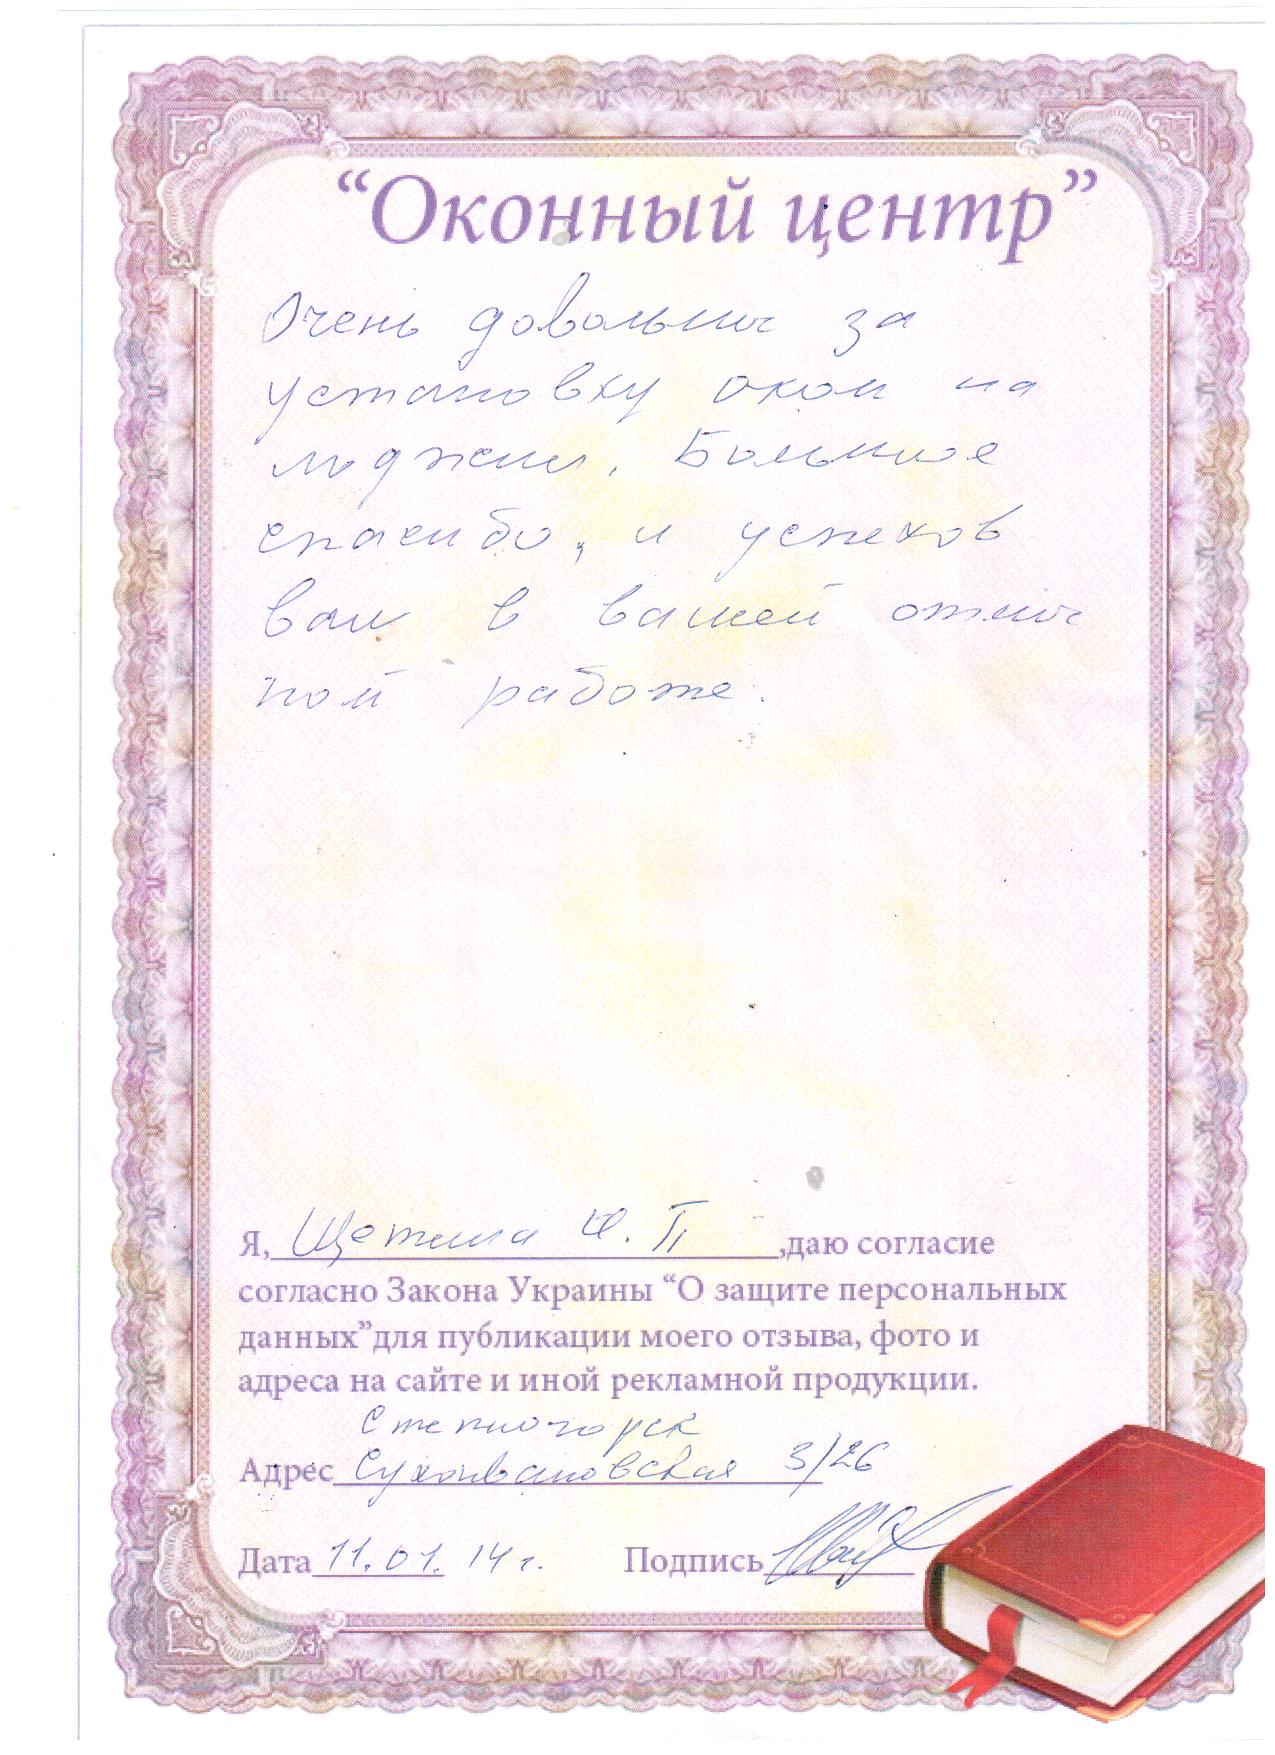 “Оконный центр”
Очень довольны за
установку окон на
лоджии. Большое
спасибо, и успехов
вам в вашей отлич
ной работе.
Я, Щетинина П.,даю согласие
согласно Закона Украины “О защите персональных
данных”для публикации моего отзыва, фото и
адреса на сайте и иной рекламной продукции.
Степногорск
Адрес Сухоивановская 3/26
Дата 11.01.14г. Подпись